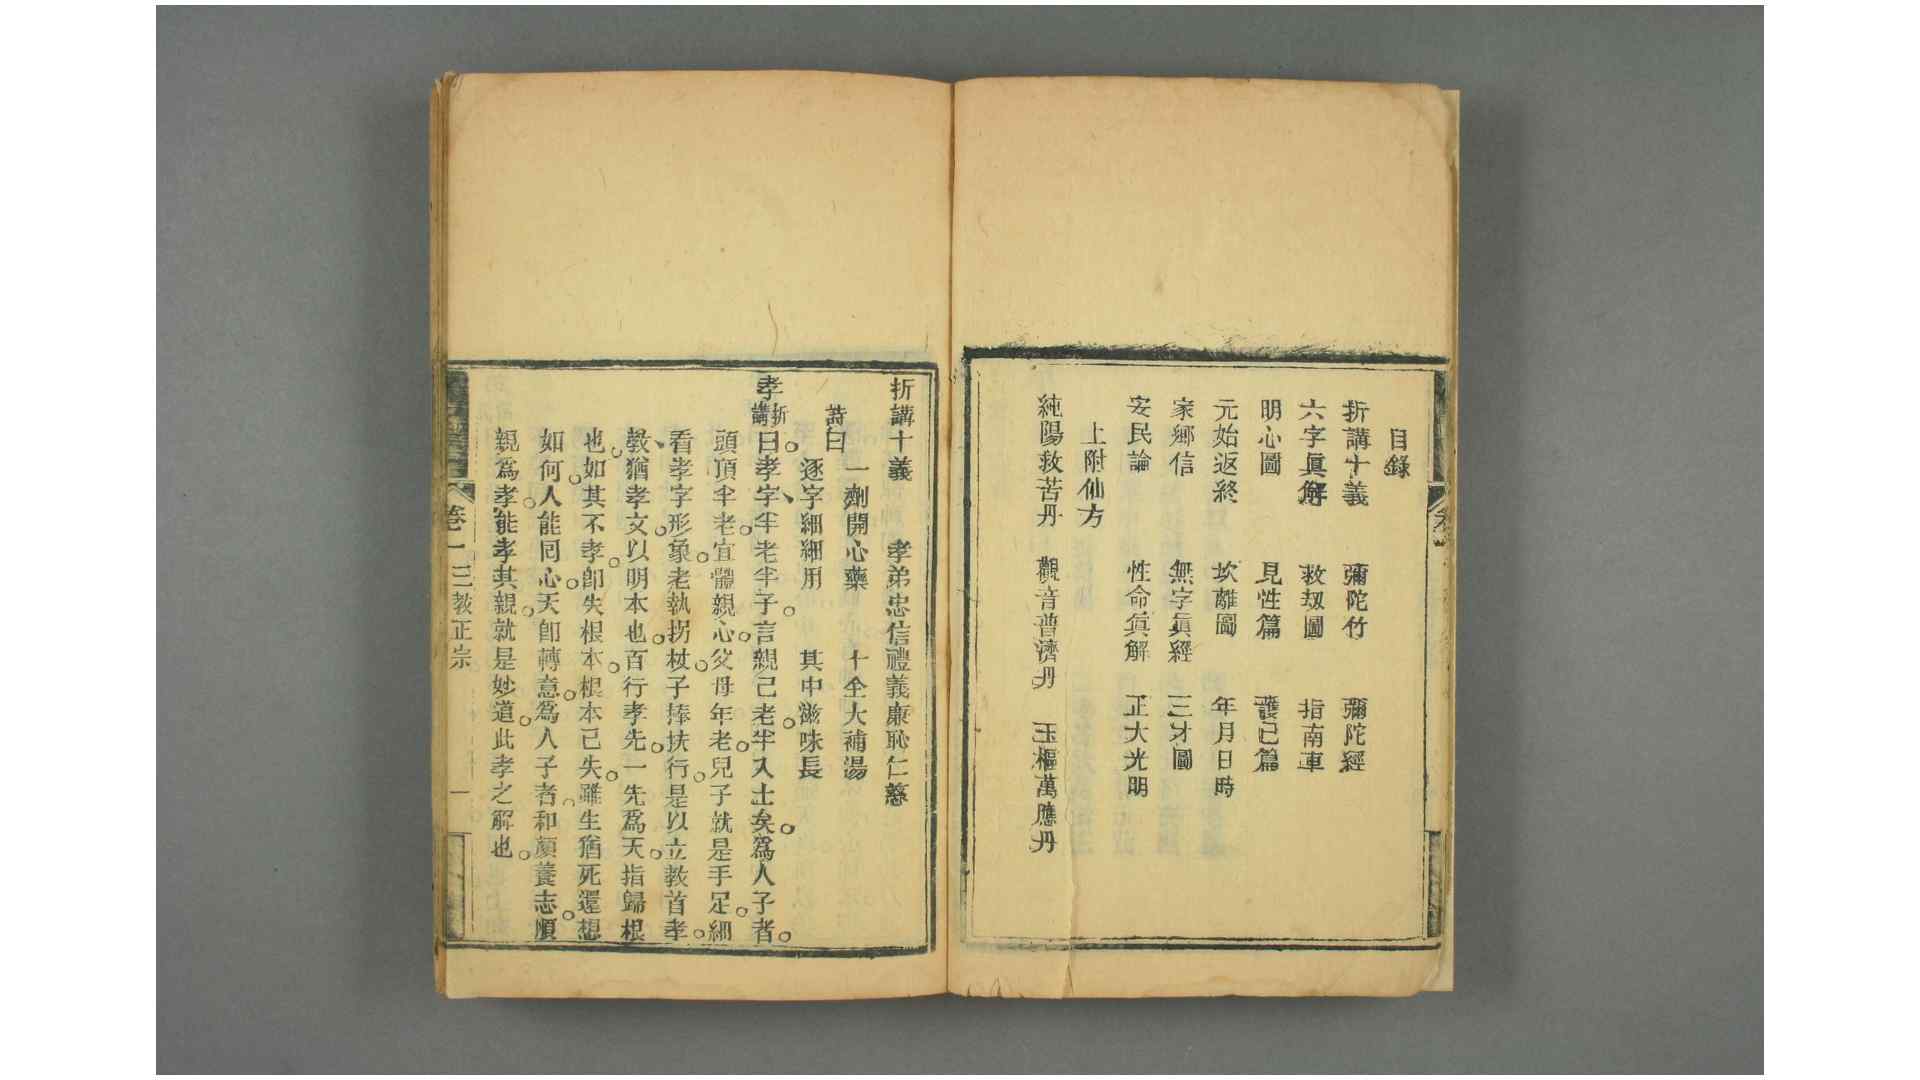 目錄
折講十義　彌陀竹　彌陀經
六字眞解　救刼圖　指南車
明心圖　見性篇　護己篇
元始返終　坎離圖　年月日時
家鄉信　無字眞經　三才圖
安民論　性命眞解　正大光明
上附仙方
純陽救苦丹　觀音普濟丹　玉樞萬應丹
折講十義　孝弟忠信禮義廉恥仁慈
詩曰　一劑開心藥　十全大補湯
逐字細細用　其中滋味長
孝折講曰孝字半老半子言親己老半入土矣爲人子者
頭頂半老宜體親心父母年老兒子就是手足細
看孝字形象老執拐杖子捧扶行是以立教首孝
教猶孝文以明本也百行孝先一先爲天指歸根
也如其不孝卽失根本根本己失雖生猶死還想
如何人能同心天卽轉意爲人子者和顏養志順
親爲孝能孝其親就是妙道此孝之解也
卷一三教正宗　一